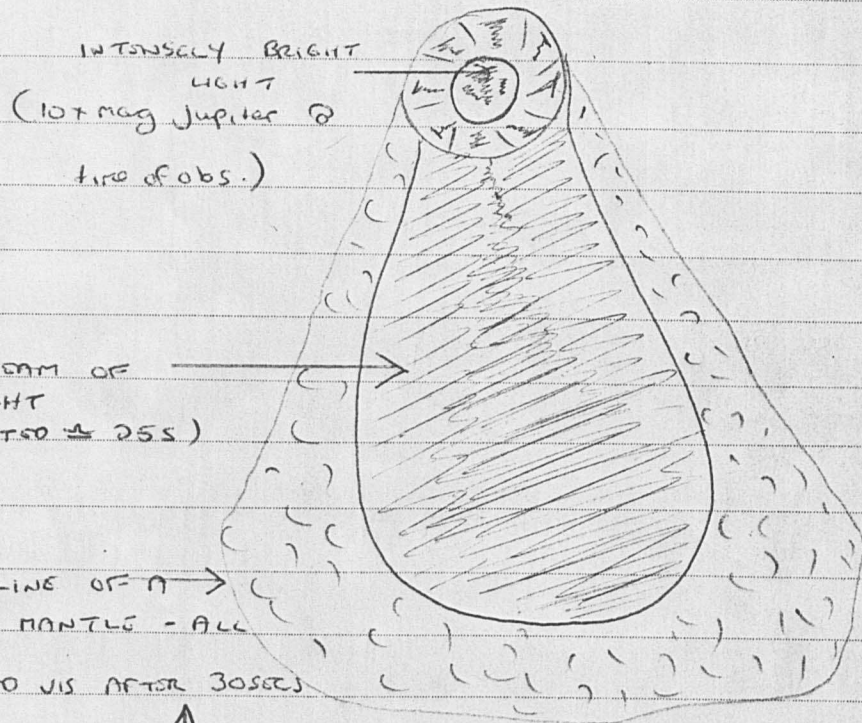 INTENSELY BRIGHT
LIGHT
(10x mag Jupiter @
time of obs.)
EAM OF
HT
TED ≏ 25S)
LINE OF A
MANTLE - ALL
O VIS AFTER 30SECS